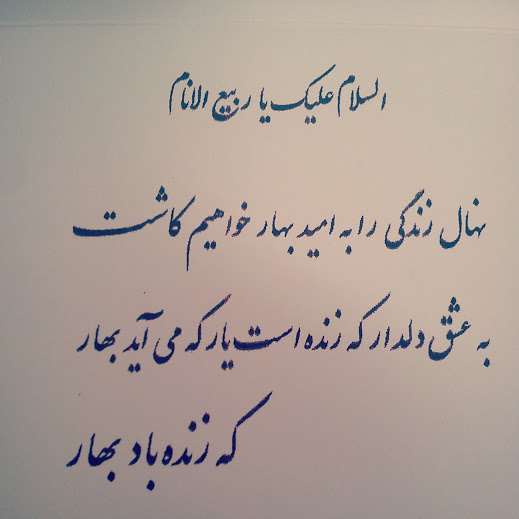 السلام علیک یا ربیع الانام
نهال زندگی را به امید بهار خواهیم کاشت
به عشق دلدار که زنده است یار که می آید بهار
که زنده باد بهار